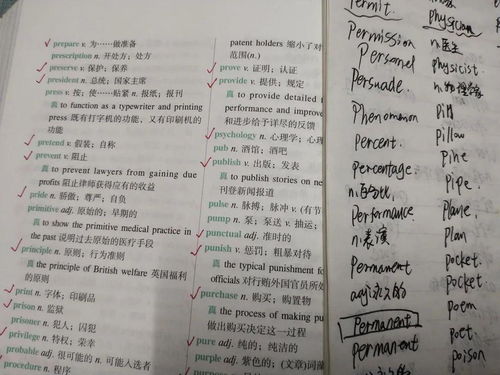 prepare v. 为……做准备
prescription n. 开处方；处方
preserve v. 保护；保养
president n. 总统；国家主席
press v. 按；使……贴紧 n. 报纸；报刊
真 to function as a typewriter and printing
press 既有打字机的功能，又有印刷机的
功能
pretend v. 假装；自称
prevent v. 阻止
真 to prevent lawyers from gaining due
profits 阻止律师获得应有的收益
pride n. 骄傲；尊严；自负
primitive adj. 原始的；早期的
真 to show the primitive medical practice in
the past 说明过去原始的医疗手段
principle n. 原则；行为准则
真 the principle of British welfare 英国福利
的原则
print n. 字体；印刷品
prison n. 监狱
prisoner n. 犯人；囚犯
privilege n. 特权；荣幸
probable adj. 很可能的 n. 可能入选者
procedure n. 程序
patent holders 缩小了对
范围(n.)
prove v. 证明；认证
provide v. 提供；规定
真 to provide detailed
performance and improve
和进步给予详尽的反馈
psychology n. 心理学；心
pub n. 酒馆；酒吧
publish v. 出版；发表
真 to publish stories on
刊登新闻报道
pulse n. 脉搏；脉冲 v. (有节
pump n. 泵；泵送 v. 抽运；
punctual adj. 准时的
punish v. 惩罚；粗暴对待
真 the typical punishment
officials 对行贿外国官员所
purchase n. 购买；购置物
真 the process of making
做出购买决定这一过程
pure adj. 纯的；纯洁的
purple adj. 紫色的；(文章)词藻
permit.
Permission
Personnel
Persuade.
Phenomenon
Percent.
percentage
n.百分比
Performance
n.表演
Permanent
adj.永久的
Permanent
permanent
physician
n.医生
physicist
n.物理学家
Pill
Pillow
Pine
Pipe.
Plane.
Plan
Pocket.
Pocket.
Poem
Poet.
Poison